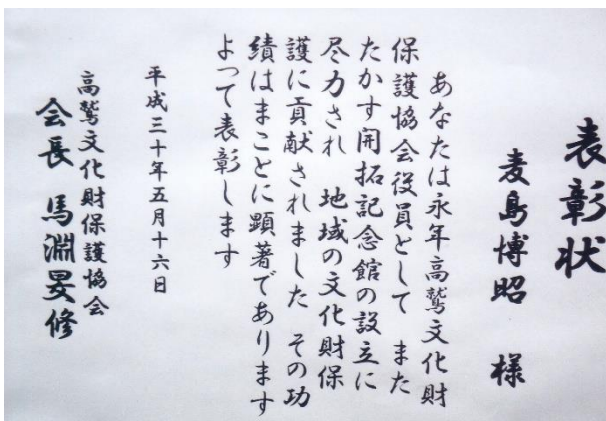 表彰状
麦島博昭 様
あなたは永年高鷲文化財
保護協会役員として また
たかす開拓記念館の設立に
尽力され 地域の文化財保
護に貢献されました その功
績はまことに顕著であります
よって表彰します
平成三十年五月十六日
高鷲文化財保護協会
会長 馬淵旻修